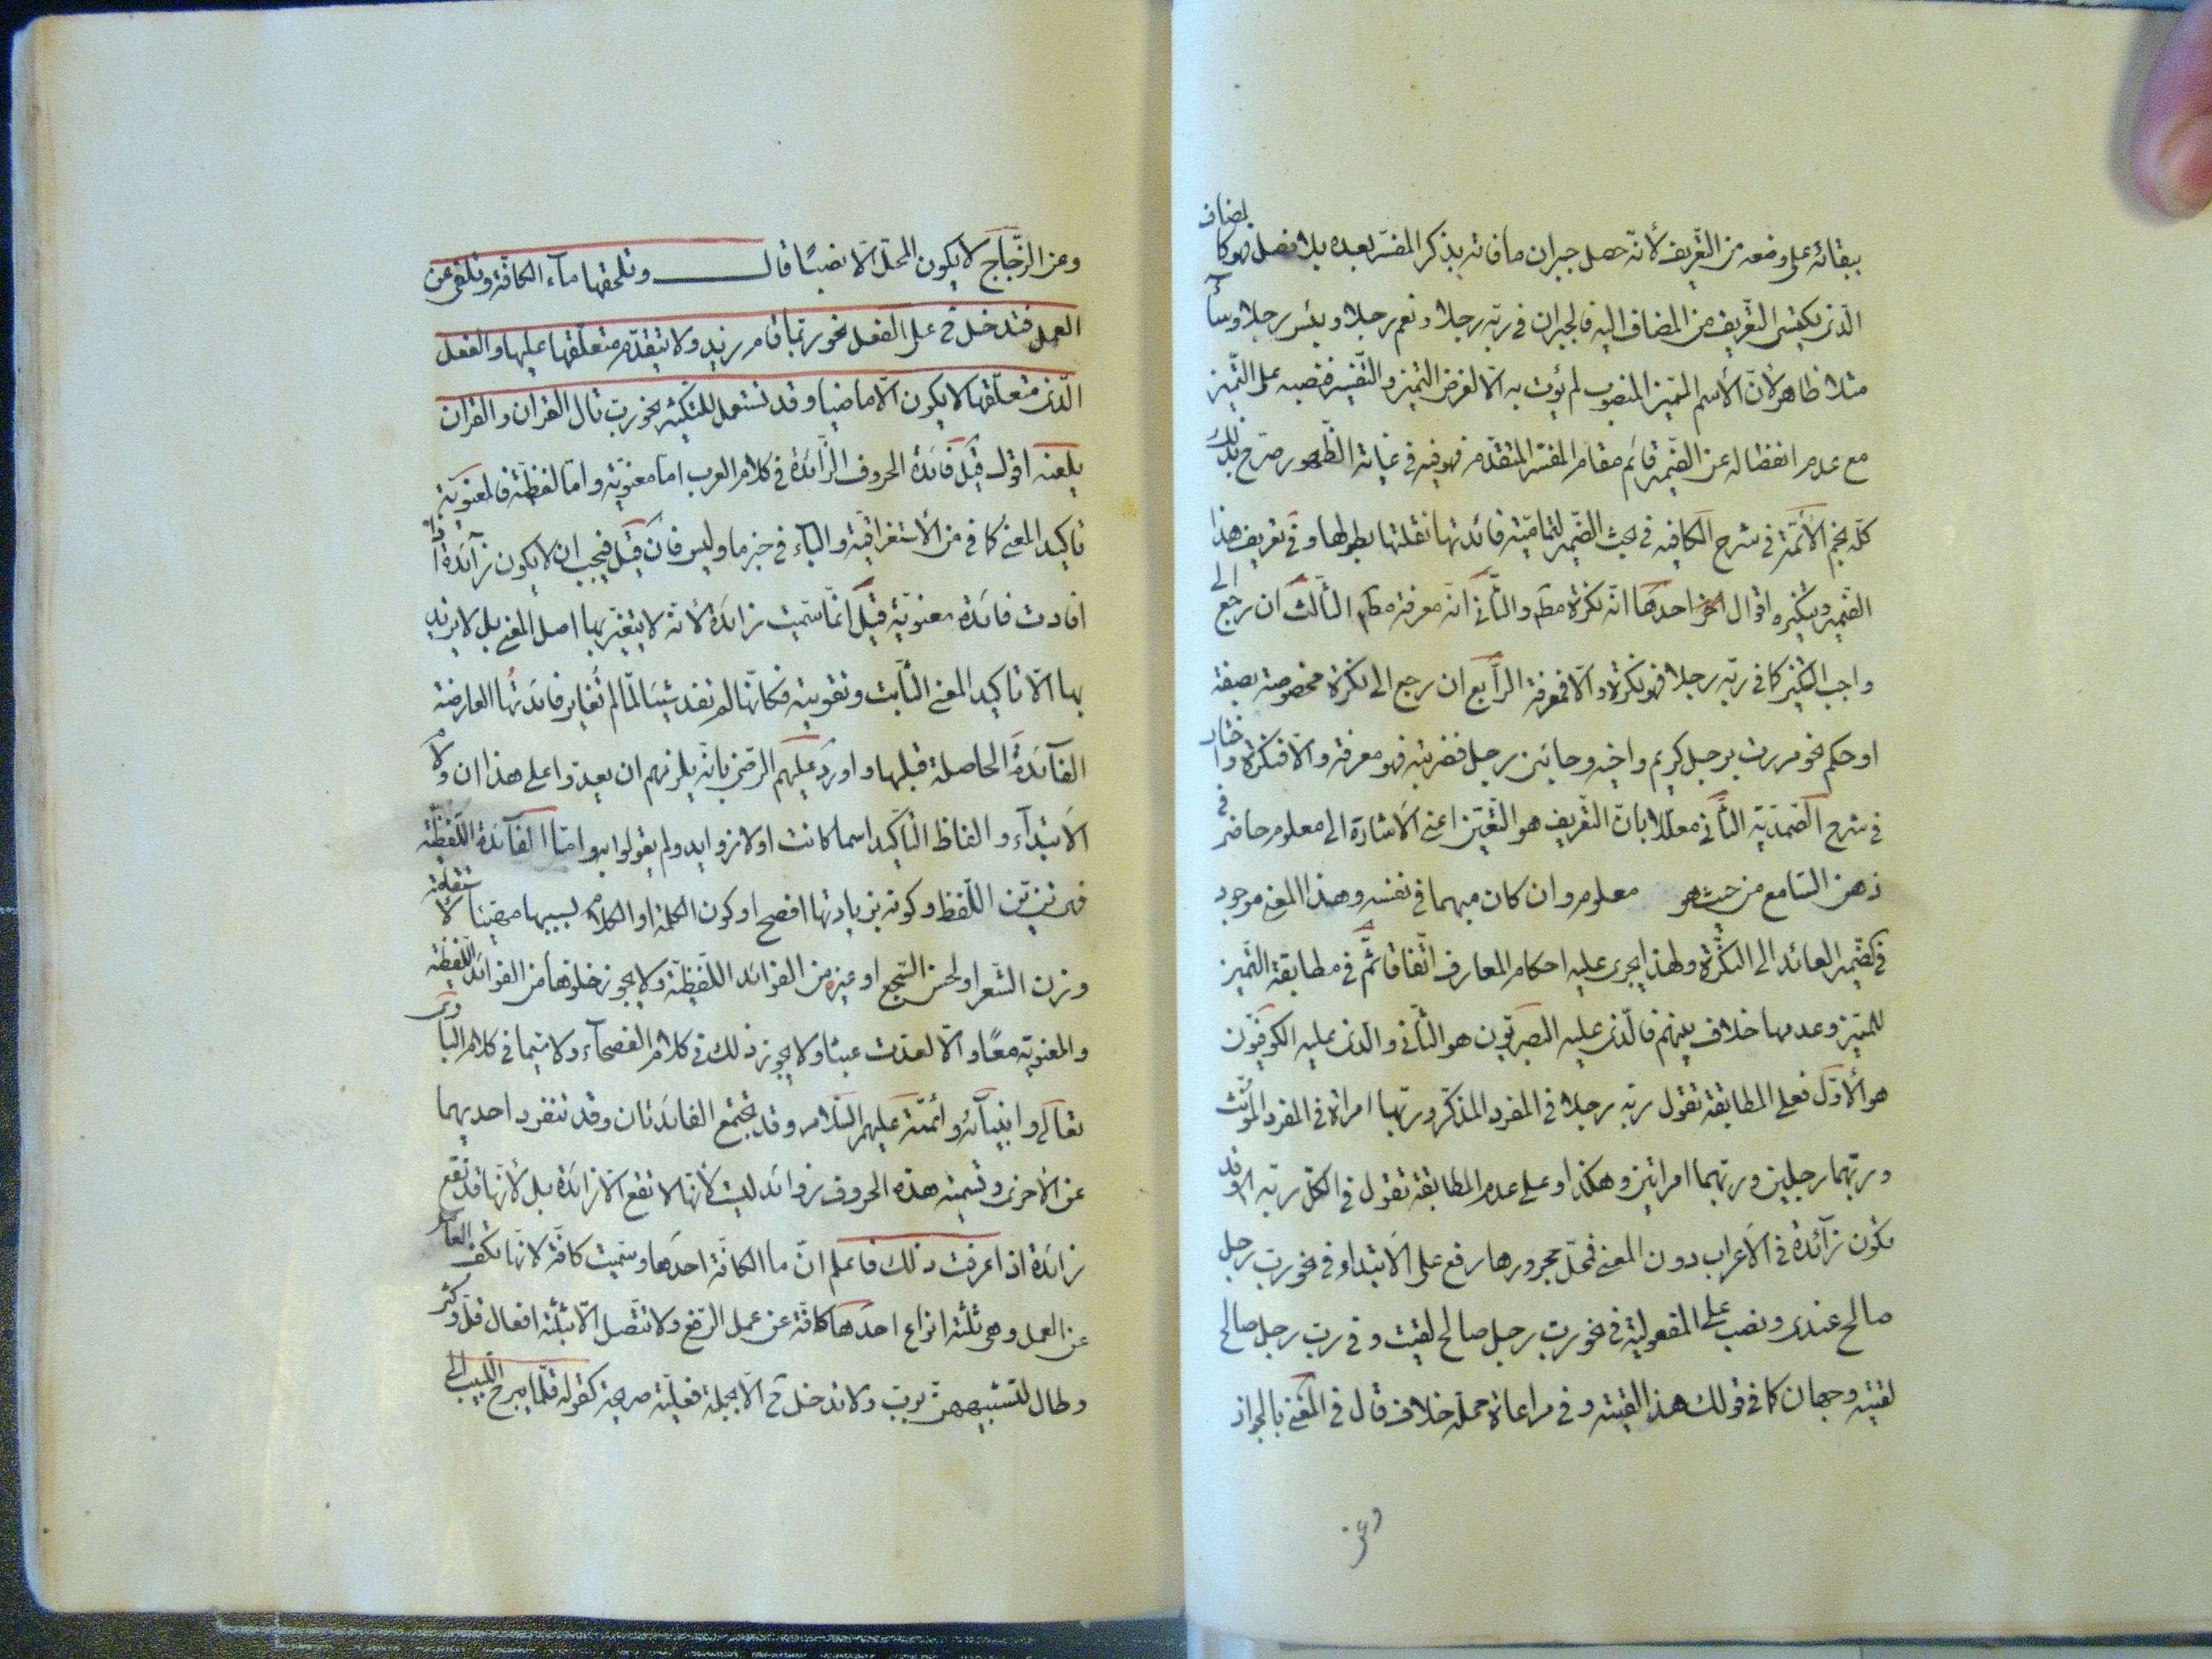 ببقائه على وضعه من التّعريف لأنّه حصل جبران ما فاته بذكر المفسّر بعده بلا فصل فهو كالمضاف
الّذى يكتسى التّعريف من المضاف اليه فالجبران فى ربّه رجلا ونعم رجلا وبئس رجلا وسآء
مثلا ظاهر لأنّ الأسم المميّز المنصوب لم يؤت به الّا لغرض التميز والتّفسير فنصبه على التّميز
مع عدم انفضاله عن الضّمير قائم مقام المفسّر المتقدّم فهو فيه فى غاية الظّهور صرّح بذلك
كلّه نجم الأئمّة فى شرح الكافيه فى بحث الضّمير لتماميّة فائدتها نقلتها بطولها وفى تعريف هذا
الضّمير وتنكيره اقوال احدها انّه نكرة مطم والثّانى انّه معرفة مطم الثّالث ان رجع الى
واجب التنكير كما فى ربّه رجلا فهو نكرة والّا فمعرفة الرّابع ان رجع الى نكرة مخصوصة بصفة
او حكم نحو مررت برجل كريم واخيه وجائنى رجل فضربته فهو معرفة والّا فنكرة واختار
فى شرح الصّمديّة الثّانى معلّلا بانّ التّعريف هو التّعيّن اعنى الاشارة الى معلوم حاضر فى
ذهن السّامع من حيث هو معلوم وان كان مبهما فى نفسه وهذا المعنى موجود
فى الضّمير العائد الى النّكرة ولهذا يجرى عليه احكام المعارف اتّفاقا ثمّ فى مطابقة التّميز
للمميّز وعدمها خلاف بينهم فالّذى عليه البصريّون هو الثّانى والّذى عليه الكوفيّون
هو الأوّل فعلى المطابقة تقول ربّه رجلا فى المفرد المذكّر وربّها امراة فى المفرد المؤنّث
وربّهما رجلين وربّهما امراتين وهكذا وعلى عدم المطابقة تقول فى الكلّ ربّه وقد
تكون زآئدة فى الاعراب دون المعنى فمحلّ مجرورها رفع على الابتداء فى نحو ربّ رجل
صالح عندى ونصب على المفعولية فى نحو ربّ رجل صالح لقيت وفى ربّ رجل صالح
لقيته وجهان كما فى قولك هذا لقيته وفى مراعاة محلّه خلاف قال فى المغنى بالجواز
وعن
وعن الزّجّاج لا يكون المحلّ الّا نصبًا قال وتلحقها مآء الكافّة وتلقى عن
العمل فتدخل ح على الفعل نحو ربّما قام زيد ولا يتقدّم متعلّقها عليها والفعل
الّذى متعلّقها لا يكون الّا ماضيا وقد تستعمل للتّكثير نحو ربّ تال القران والقران
يلعنه اقول قيل فائدة الحروف الزّائدة فى كلام العرب امّا معنويّة وامّا لفظيّة فالمعنويّة
تاكيد المعنى كما فى من الأستغراقيّة والبآء فى خبر ما وليس فان قيل فيجب ان لا يكون زآئدة اذا
افادت فائدة معنويّة قيل انّما سمّيت زائدة لأنّه لا يتغيّر بها اصل المعنى بل لا يزيد
بها الّا تاكيد المعنى الثّابت وتقويته فكانّها لم تفد شيئا لمّا لم تُغاير فائدتُها العارضة
الفآئدةَ الحاصلة قبلها واورد عليهم الرضىّ بانّه يلزمهم ان يعدّوا على هذا ان ولام
الابتدآء والفاظ التّأكيد اسما كانت اولا زوايد ولم يقولوا به وامّا الفآئدة اللّفظيّة
فهى تزيّن اللّفظ وكونه بزيادتها افصح او كون الكلمة او الكلام بسببها مهيّئا لاستقامة
وزن الشّعر او لحسن السّجع او غيره من الفوائد اللّفظيّة ولا يجوز خلوّها من الفوائد اللّفظيّة
والمعنويّة معًا والّا لعدّت عبثا ولا يجوز ذلك فى كلام الفصحآء ولا سيّما فى كلام البارى
تعالى وانبيآئه وأئمّته عليهم السّلام وقد تجتمع الفائدتان وقد تنفرد احديهما
عن الأخرى وتسمية هذه الحروف زوائد ليست لأنّها لا تقع الّا زائدة بل لأنّها قد تقع
زائدة اذا عرفت ذلك فاعلم انّ ما الكافّة احدها وسمّيت كافّة لانّها تكفّ العامل
عن العمل وهى ثلثة انواع احدها كافّة عن عمل الرّفع ولا تتّصل الّا بثلثة افعال قلّ وكثر
وطال لتشبيههن بربّ ولا تدخل ح الّا بجملة فعليّة صريحة كقوله قلّما يبرح اللّبيب الى